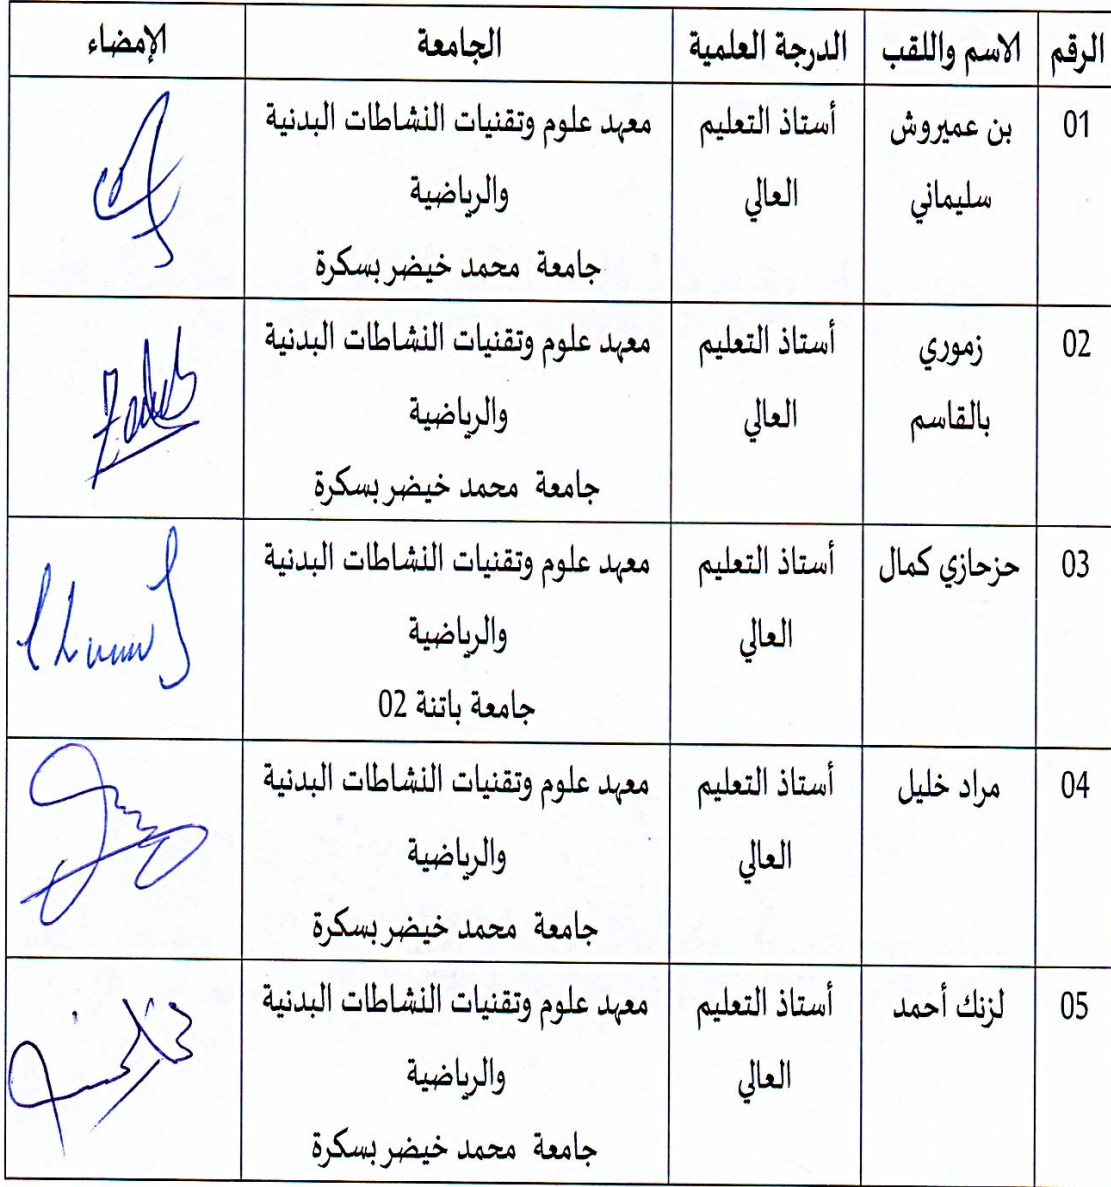 الرقم الاسم واللقب الدرجة العلمية الجامعة الإمضاء
01 بن عميروش أستاذ التعليم معهد علوم وتقنيات النشاطات البدنية
سليماني العالي والرياضية
جامعة محمد خيضر بسكرة
02 زموري أستاذ التعليم معهد علوم وتقنيات النشاطات البدنية
بالقاسم العالي والرياضية
جامعة محمد خيضر بسكرة
03 حزحازي كمال أستاذ التعليم معهد علوم وتقنيات النشاطات البدنية
العالي والرياضية
جامعة باتنة 02
04 مراد خليل أستاذ التعليم معهد علوم وتقنيات النشاطات البدنية
العالي والرياضية
جامعة محمد خيضر بسكرة
05 لزنك أحمد أستاذ التعليم معهد علوم وتقنيات النشاطات البدنية
العالي والرياضية
جامعة محمد خيضر بسكرة